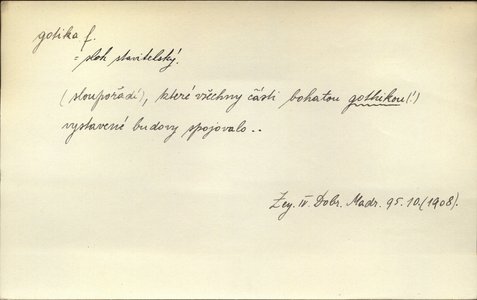 gotika f.
= sloh stavitelský.
(sloupořadí), které všechny části bohatou gothikou(!)
vystavené budovy spojovalo..
Zey. IV. Dobr. Madr. 95.10.(1908).